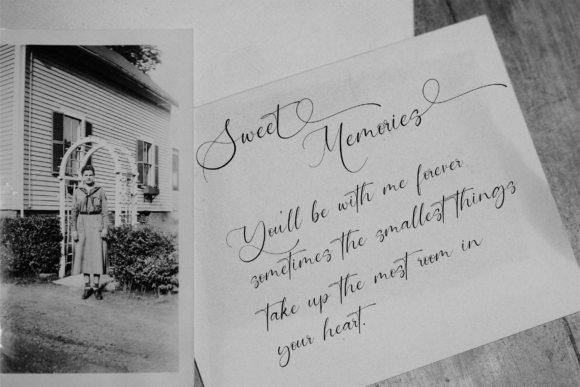 Sweet Memories
You'll be with me forever
sometimes the smallest things
take up the most room in
your heart.